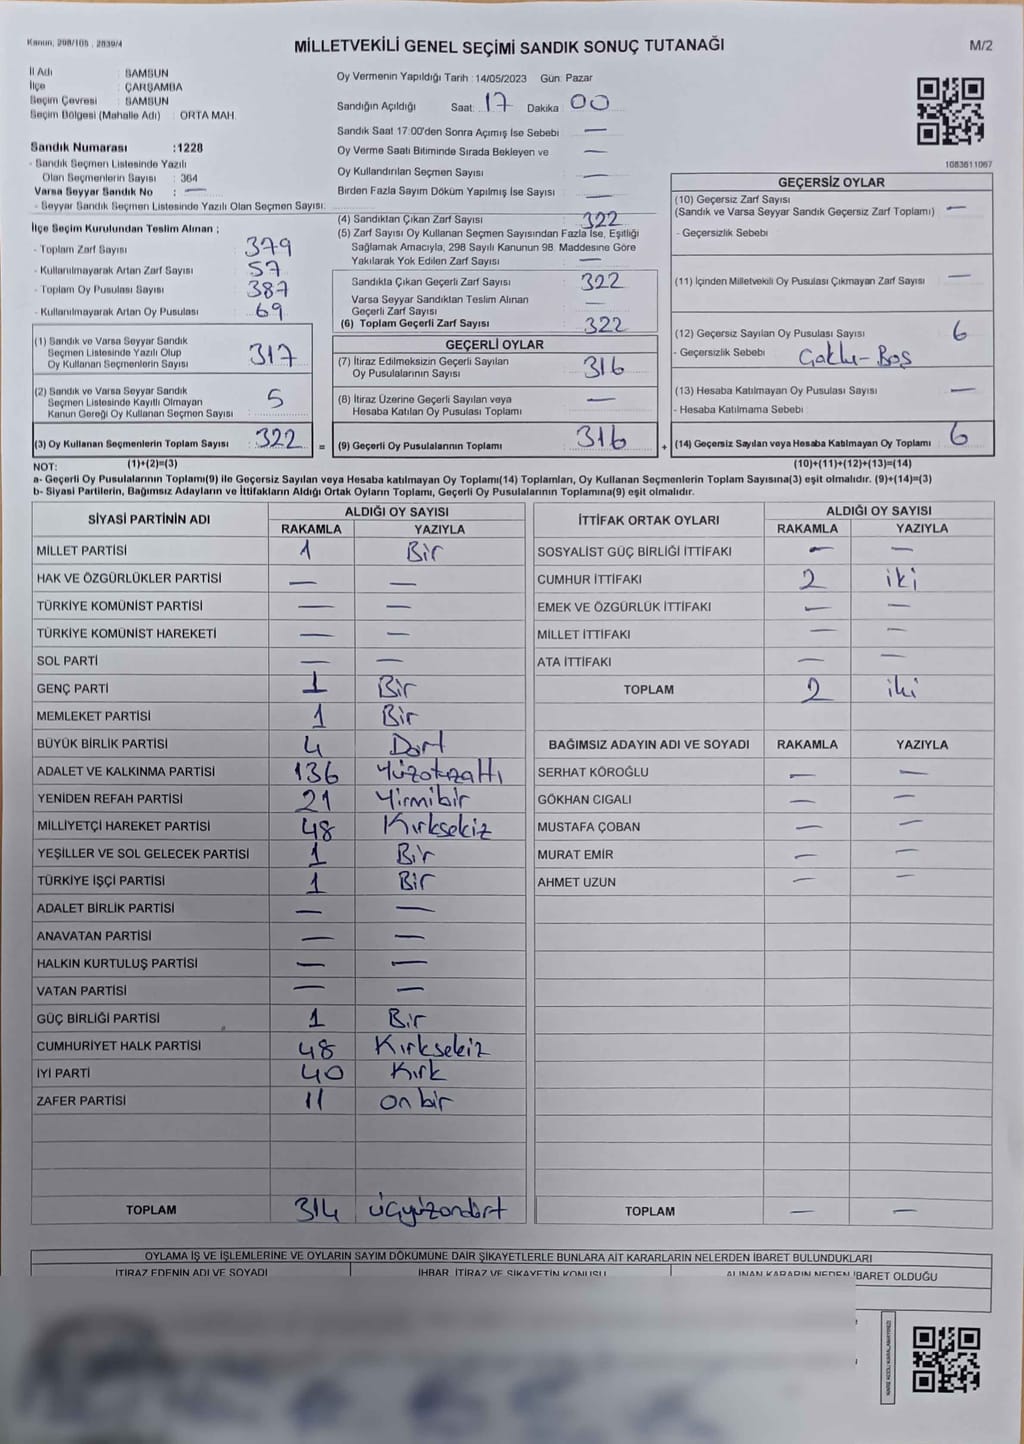 Kanun: 298/105 , 2839/4
MİLLETVEKİLİ GENEL SEÇİMİ SANDIK SONUÇ TUTANAĞI
M/2
İl Adı : SAMSUN
İlçe : ÇARŞAMBA
Seçim Çevresi : SAMSUN
Seçim Bölgesi (Mahalle Adı) : ORTA MAH.
Sandık Numarası :1228
- Sandık Seçmen Listesinde Yazılı
Olan Seçmenlerin Sayısı : 364
Varsa Seyyar Sandık No : —
- Seyyar Sandık Seçmen Listesinde Yazılı Olan Seçmen Sayısı:
İlçe Seçim Kurulundan Teslim Alınan ;
- Toplam Zarf Sayısı : 379
- Kullanılmayarak Artan Zarf Sayısı : 57
- Toplam Oy Pusulası Sayısı : 387
- Kullanılmayarak Artan Oy Pusulası : 69
(1) Sandık ve Varsa Seyyar Sandık
Seçmen Listesinde Yazılı Olup
Oy Kullanan Seçmenlerin Sayısı : 317
(2) Sandık ve Varsa Seyyar Sandık
Seçmen Listesinde Kayıtlı Olmayan
Kanun Gereği Oy Kullanan Seçmen Sayısı : 5
(3) Oy Kullanan Seçmenlerin Toplam Sayısı : 322
Oy Vermenin Yapıldığı Tarih : 14/05/2023 Gün: Pazar
Sandığın Açıldığı Saat: 17 Dakika 00
Sandık Saat 17:00'den Sonra Açımış İse Sebebi : —
Oy Verme Saati Bitiminde Sırada Bekleyen ve : —
Oy Kullandırılan Seçmen Sayısı : —
Birden Fazla Sayım Döküm Yapılmış İse Sayısı : —
(4) Sandıktan Çıkan Zarf Sayısı : 322
(5) Zarf Sayısı Oy Kullanan Seçmen Sayısından Fazla İse, Eşitliği
Sağlamak Amacıyla, 298 Sayılı Kanunun 98. Maddesine Göre
Yakılarak Yok Edilen Zarf Sayısı : —
Sandıkla Çıkan Geçerli Zarf Sayısı : 322
Varsa Seyyar Sandıktan Teslim Alınan
Geçerli Zarf Sayısı : —
(6) Toplam Geçerli Zarf Sayısı : 322
GEÇERLİ OYLAR
(7) İtiraz Edilmeksizin Geçerli Sayılan
Oy Pusulalarının Sayısı : 316
(8) İtiraz Üzerine Geçerli Sayılan veya
Hesaba Katılan Oy Pusulası Toplamı : —
= (9) Geçerli Oy Pusulalarının Toplamı : 316
1083611067
GEÇERSİZ OYLAR
(10) Geçersiz Zarf Sayısı
(Sandık ve Varsa Seyyar Sandık Geçersiz Zarf Toplamı) : —
- Geçersizlik Sebebi
(11) İçinden Milletvekili Oy Pusulası Çıkmayan Zarf Sayısı : —
(12) Geçersiz Sayılan Oy Pusulası Sayısı : 6
- Geçersizlik Sebebi : Çoklu-Boş
(13) Hesaba Katılmayan Oy Pusulası Sayısı : —
- Hesaba Katılmama Sebebi :
+ (14) Geçersiz Sayılan veya Hesaba Katılmayan Oy Toplamı : 6
NOT: (1)+(2)=(3) (10)+(11)+(12)+(13)=(14)
a- Geçerli Oy Pusulalarının Toplamı(9) ile Geçersiz Sayılan veya Hesaba katılmayan Oy Toplamı(14) Toplamları, Oy Kullanan Seçmenlerin Toplam Sayısına(3) eşit olmalıdır. (9)+(14)=(3)
b- Siyasi Partilerin, Bağımsız Adayların ve İttifakların Aldığı Ortak Oyların Toplamı, Geçerli Oy Pusulalarının Toplamına(9) eşit olmalıdır.
SİYASİ PARTİNİN ADI ALDIĞI OY SAYISI
RAKAMLA YAZIYLA
MİLLET PARTİSİ 1 Bir
HAK VE ÖZGÜRLÜKLER PARTİSİ — —
TÜRKİYE KOMÜNİST PARTİSİ — —
TÜRKİYE KOMÜNİST HAREKETİ — —
SOL PARTİ — —
GENÇ PARTİ 1 Bir
MEMLEKET PARTİSİ 1 Bir
BÜYÜK BİRLİK PARTİSİ 4 Dört
ADALET VE KALKINMA PARTİSİ 136 Yüzotuzaltı
YENİDEN REFAH PARTİSİ 21 Yirmibir
MİLLİYETÇİ HAREKET PARTİSİ 48 Kırksekiz
YEŞİLLER VE SOL GELECEK PARTİSİ 1 Bir
TÜRKİYE İŞÇİ PARTİSİ 1 Bir
ADALET BİRLİK PARTİSİ — —
ANAVATAN PARTİSİ — —
HALKIN KURTULUŞ PARTİSİ — —
VATAN PARTİSİ — —
GÜÇ BİRLİĞİ PARTİSİ 1 Bir
CUMHURİYET HALK PARTİSİ 48 Kırksekiz
İYİ PARTİ 40 Kırk
ZAFER PARTİSİ 11 on bir
TOPLAM 314 üçyüzondört
İTTİFAK ORTAK OYLARI ALDIĞI OY SAYISI
RAKAMLA YAZIYLA
SOSYALİST GÜÇ BİRLİĞİ İTTİFAKI — —
CUMHUR İTTİFAKI 2 iki
EMEK VE ÖZGÜRLÜK İTTİFAKI — —
MİLLET İTTİFAKI — —
ATA İTTİFAKI — —
TOPLAM 2 iki
BAĞIMSIZ ADAYIN ADI VE SOYADI RAKAMLA YAZIYLA
SERHAT KÖROĞLU — —
GÖKHAN CIGALI — —
MUSTAFA ÇOBAN — —
MURAT EMİR — —
AHMET UZUN — —
TOPLAM — —
OYLAMA İŞ VE İŞLEMLERİNE VE OYLARIN SAYIM DÖKÜMÜNE DAİR ŞİKAYETLERLE BUNLARA AİT KARARLARIN NELERDEN İBARET BULUNDUKLARI
İTİRAZ EDENİN ADI VE SOYADI İHBAR, İTİRAZ VE ŞİKAYETİN KONUSU ALINAN KARARIN NEDEN İBARET OLDUĞU